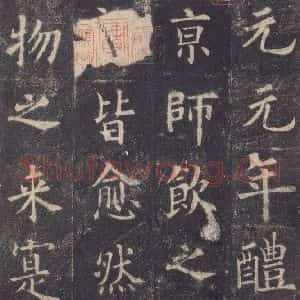 元元年醴
京師飲之
皆愈然
物之来寔
Shufawang.cn